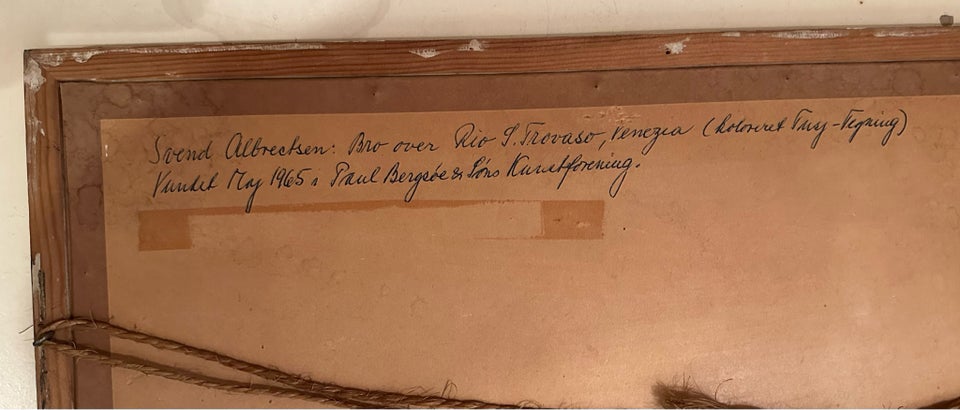 Svend Albrectsen: Bro over Rio S. Trovaso, Venezia (koloreret Tusj-Tegning)
Vundet Maj 1965 i Paul Bergsøe & Søns Kunstforening.